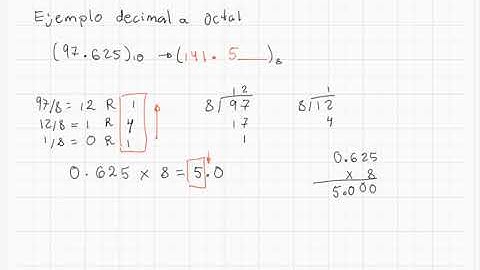 Ejemplo decimal a Octal
(97.625)10 → (141.5__)8
97/8 = 12 R 1
12/8 = 1 R 4
1/8 = 0 R 1
12
8 97
17
1
1
8 12
4
0.625 x 8 = 5.0
0.625
x 8
5.000